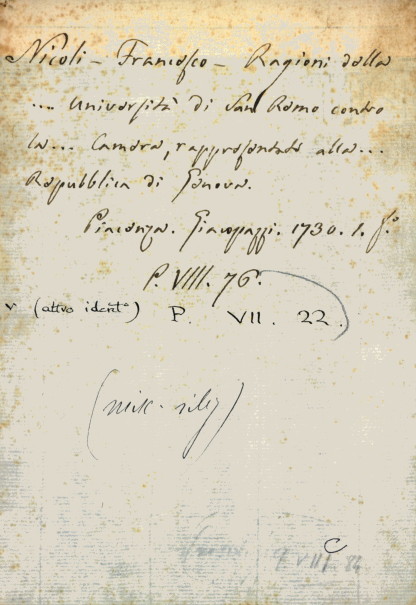 Nicoli - Francesco - Ragioni della
... Università di San Remo contro
la ... Camera, rappresentate alla ...
Repubblica di Genova.
Piacenza. Giacopazzi. 1730. 1. f.º
P. VIII. 76.
v (altro ident.º) P. VII. 22.
C
P. VIII. 84